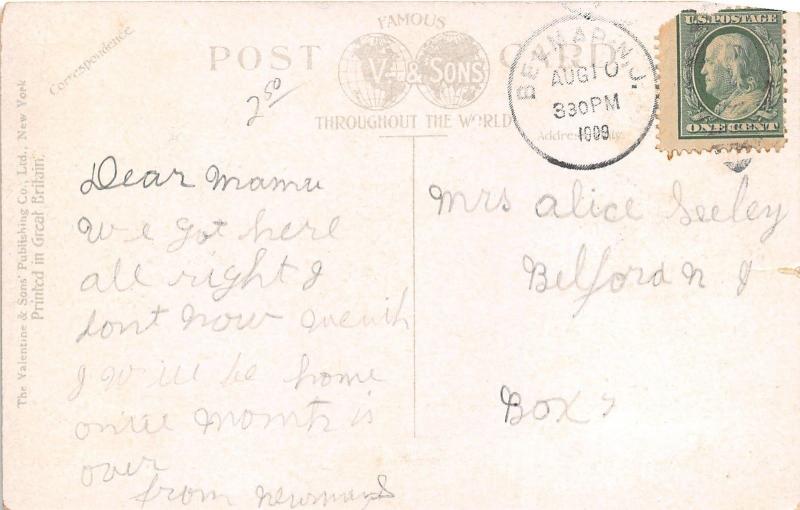 FAMOUS
POST CARD
V. & SONS
THROUGHOUT THE WORLD
Correspondence.
Address Only.
The Valentine & Sons' Publishing Co., Ltd., New York
Printed in Great Britain.
BELMAR, N.J.
AUG 10
330PM
1909
U.S. POSTAGE
ONE CENT
250
Dear Mama
We got here
all right I
dont now
I will be home
month is
over
from
Mrs Alice Seeley
Belford N J
Box 7